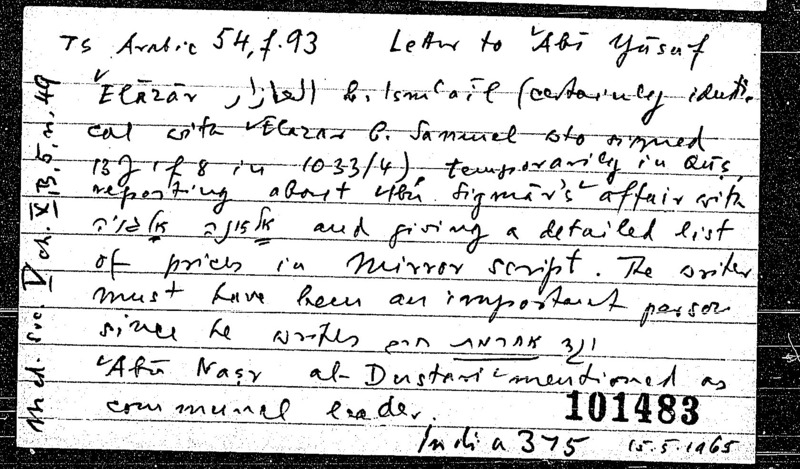 TS Arabic 54, f. 93 Letter to 'Abū Yūsuf
'Elāzār العازار b. Ismāʿīl (certainly identi-
cal with 'Elazar b. Samuel who signed
13 J 1 f 8 in 1033/4), temporarily in Qūṣ,
reporting about 'Abū Sigmār's affair with
and giving a detailed list
of prices in Mirror script. The writer
must have been an important person
since he writes
'Abū Naṣr al-Dustarī mentioned as
communal leader.
101483
India 375 15.5.1965
Med. Soc. V ch. X B, 5, n. 49